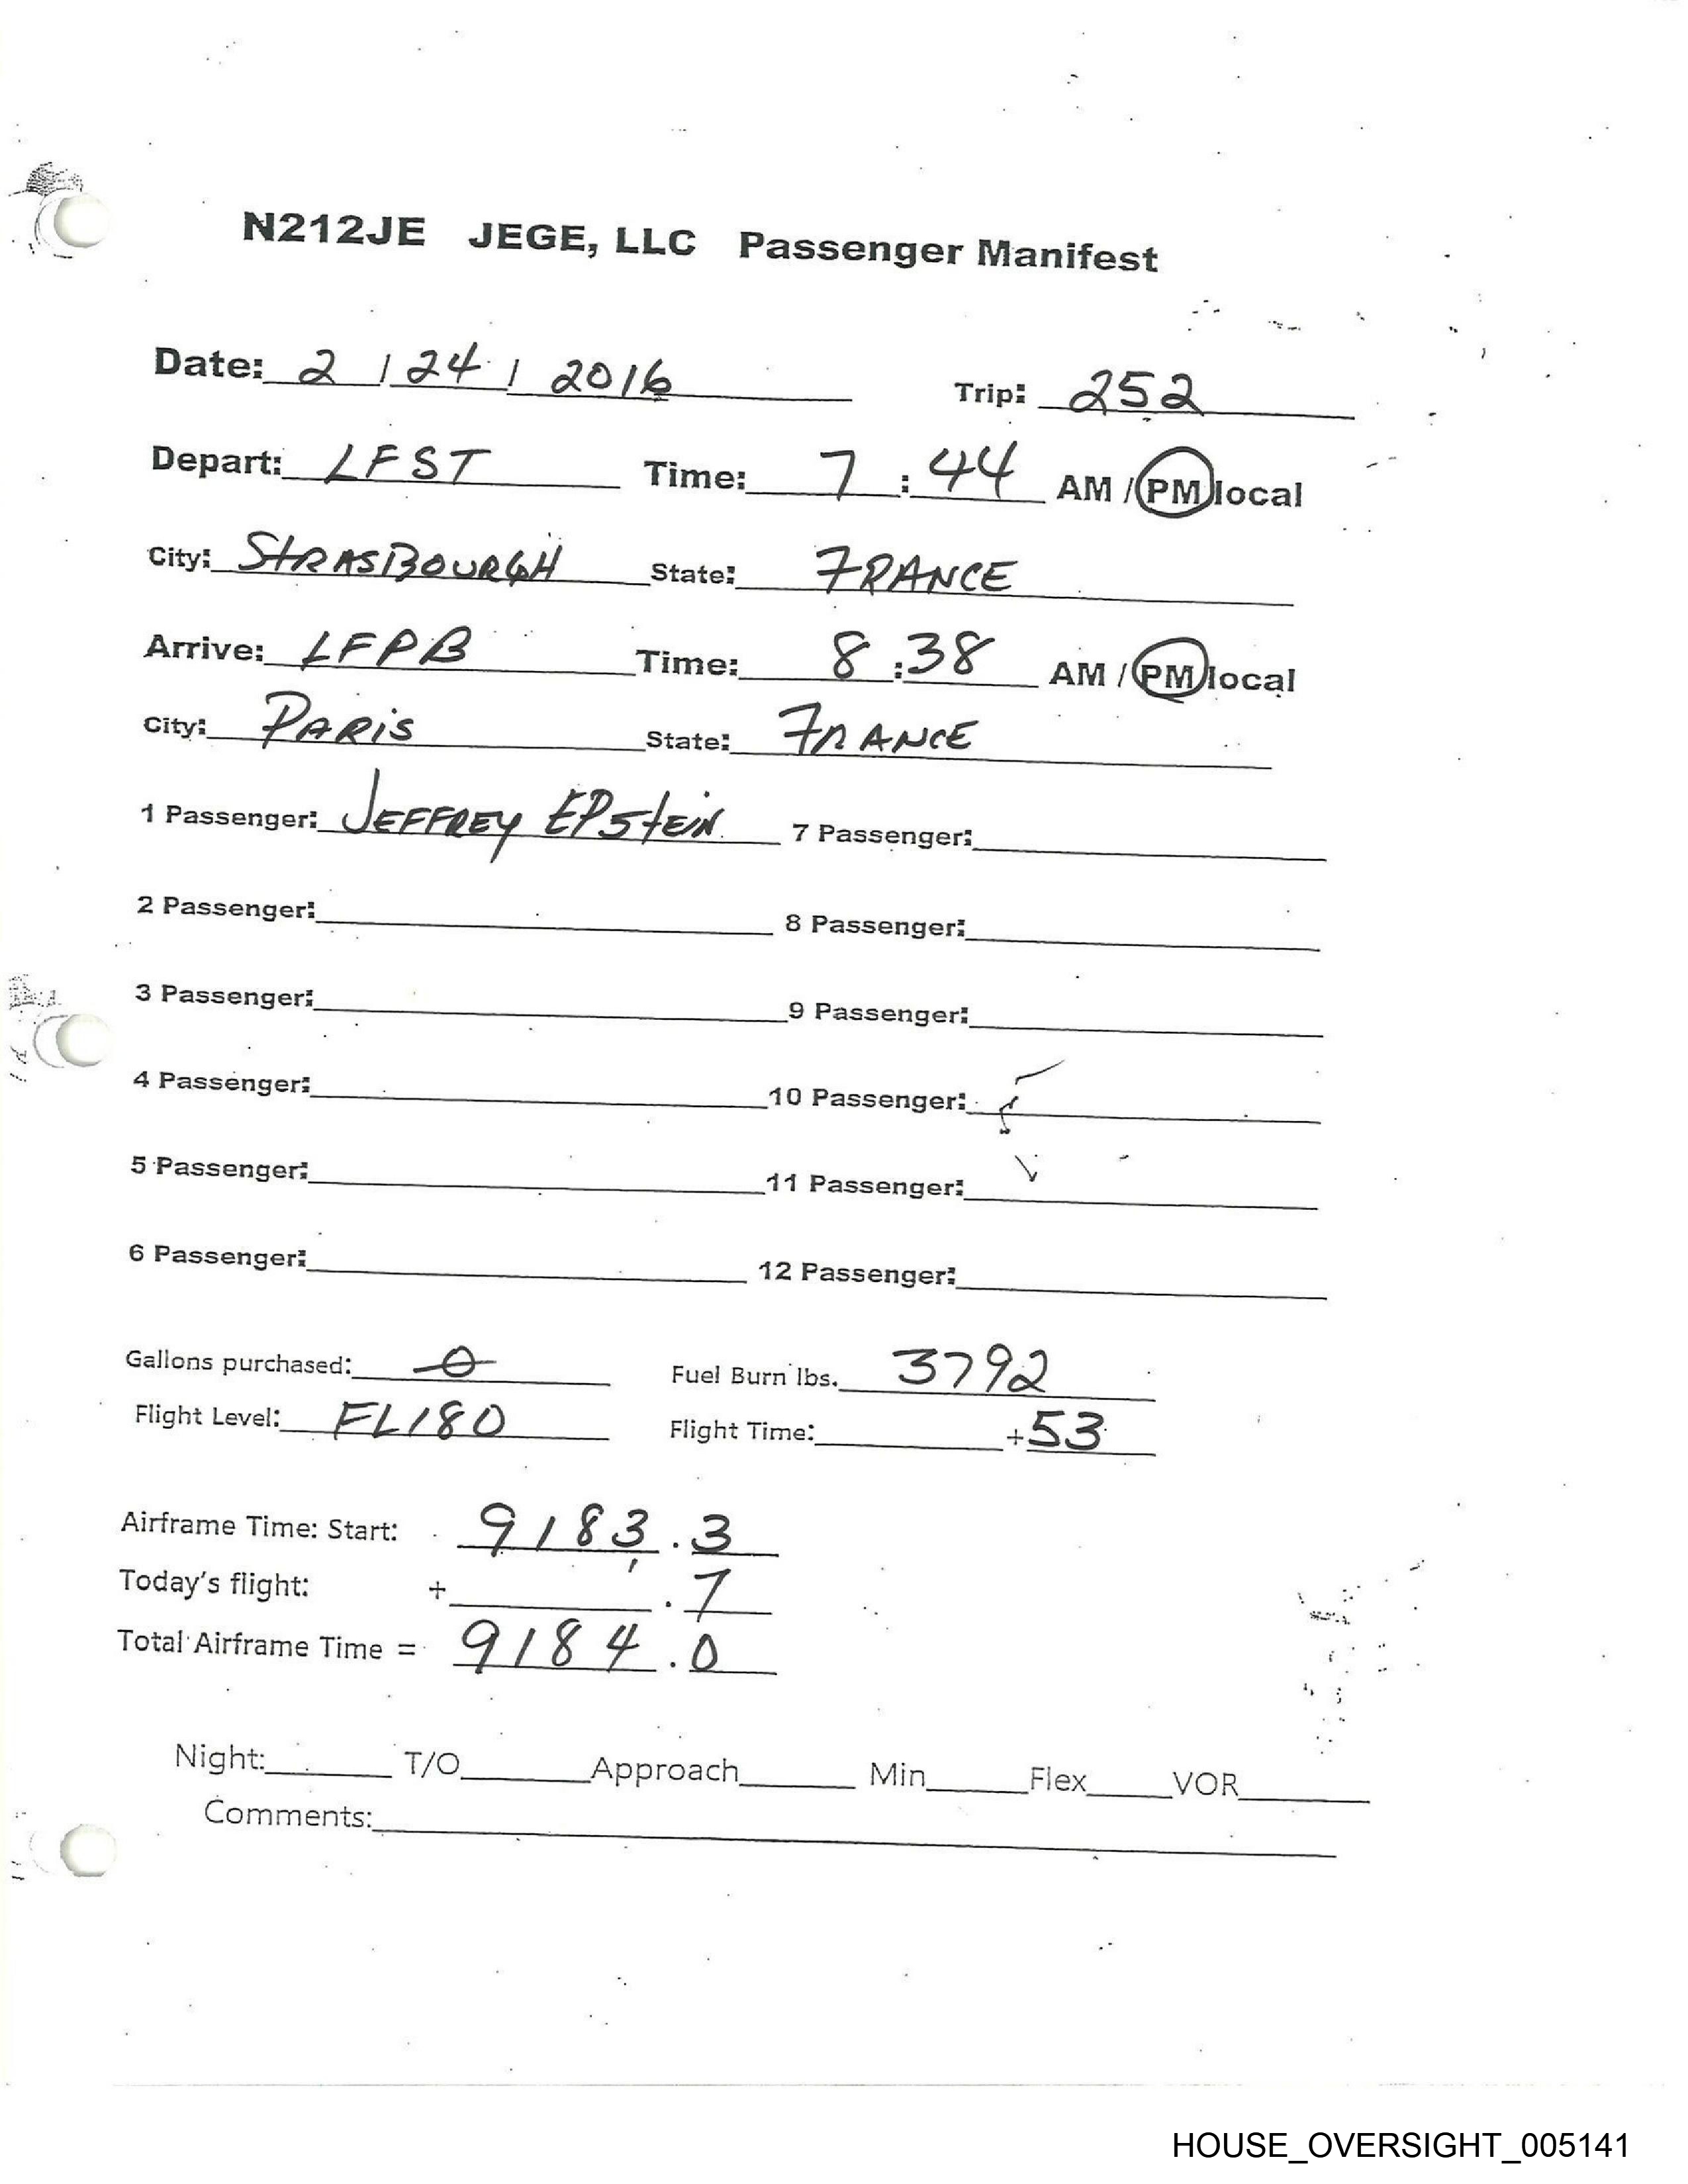 N212JE JEGE, LLC Passenger Manifest
Date: 2 / 24 / 2016 Trip: 252
Depart: LFST Time: 7 : 44 AM / PM local
City: STRASBOURGH State: FRANCE
Arrive: LFPB Time: 8 : 38 AM / PM local
City: PARIS State: FRANCE
1 Passenger: JEFFREY EPSTEIN 7 Passenger:
2 Passenger: 8 Passenger:
3 Passenger: 9 Passenger:
4 Passenger: 10 Passenger:
5 Passenger: 11 Passenger:
6 Passenger: 12 Passenger:
Gallons purchased: 0 Fuel Burn lbs. 3792
Flight Level: FL180 Flight Time: +53
Airframe Time: Start: 9183.3
Today's flight: + .7
Total Airframe Time = 9184.0
Night: T/O Approach Min Flex VOR
Comments:
HOUSE_OVERSIGHT_005141